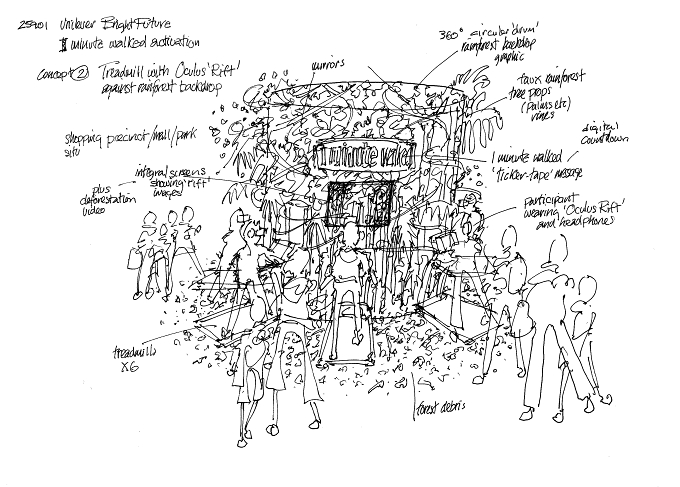 25901 Unilever Bright Future
1 minute walked activation
Concept ② Treadmill with Oculus 'Rift'
against rainforest backdrop
mirrors
360° circular 'drum'
rainforest backdrop
graphic
faux rainforest
tree props
(palms etc)
vines
digital
countdown
shopping precinct/mall/park
situ
1 minute walked
1 minute walked/
'ticker-tape' message
integral screens
showing 'rift'
images
plus
deforestation
video
participant
wearing 'Oculus Rift'
and headphones
treadmills
x6
forest debris